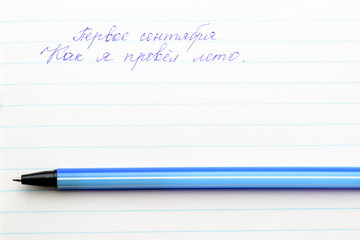 Первое сентября
Как я провёл лето.